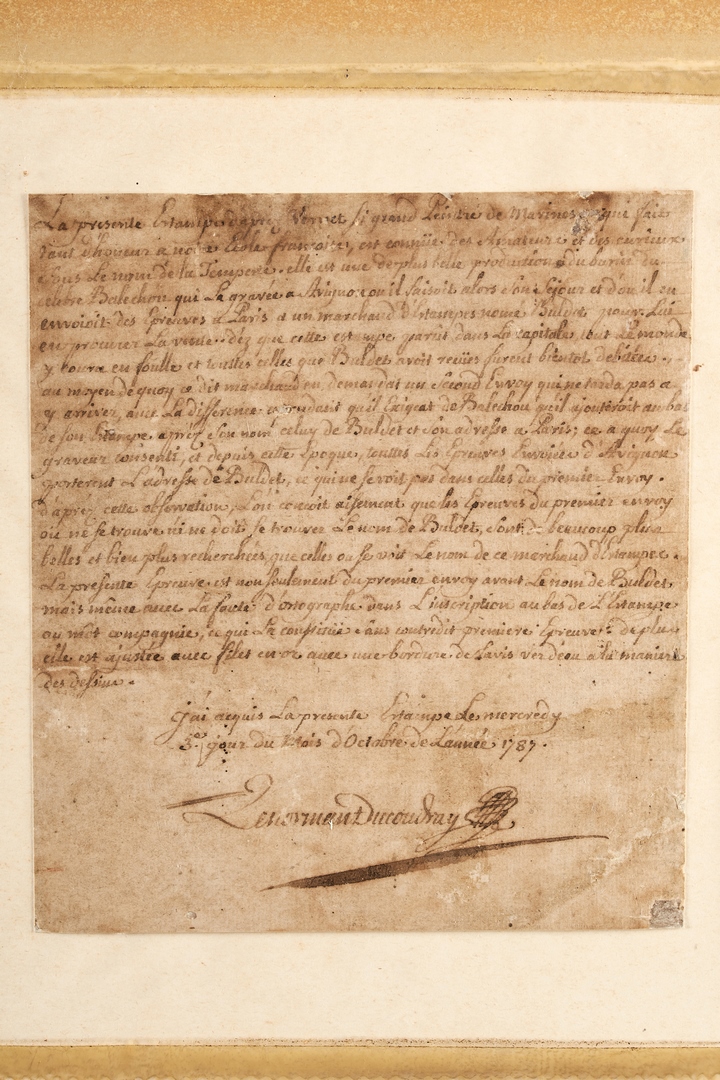 La presente Estampe d'après Vernet si grand Peintre de Marines, qui fait
tant d'honeur a notre Ecole françoise, est connüe des Amateurs et des curieux
sous le nom de la Tempeste. elle est une des plus belle productions du burin du
celebre Balechou qui La gravée a Avignon, ou il faisoit alors son séjour et d'ou il en
envoioit des Epreuves a Paris a un marchand d'Estampes nomé Buldet, pour Lui
en procurer La vente. dèz que cette estampe parût dans La capitale, tout Le monde
y courû en foulle et touttes celles que Buldet avoit reçües furent bientôt debitées.
au moyen de quoy ce dit marchand en demandat un second Envoy qui ne tarda pas a
y arriver, avec La difference cependant qu'il Exigeat de Balechou qu'il ajouteroit au bas
de son Estampe, après son nom celuy de Buldet et son adresse a Paris; ce a quoy Le
graveur consentit, et depuis cette Epoque, touttes Les Epreuves Envoiées d'Avignon
porterent L'adresse de Buldet, ce qui ne se voit pas dans celles du premier Envoy.
d'après cette observation, L'on conçoit aisement que les Epreuves du premier envoy
ou ne se trouve ni ne doit se trouver Le nom de Buldet, sont de beaucoup plus
belles et bien plus recherchées que celles ou se voit Le nom de ce marchand d'Estampes.
La présente Epreuve est non seulement du premier envoy avant Le nom de Buldet,
mais même avec La faute d'ortographe dans L'inscription au bas de L'Estampe
au mot compagnie, ce qui La constitüe sans contredit premiere Epreuve: de plus
elle est ajustée avec filets en or avec une bordure de Lavis verdeau a la maniere
des dessins.
j'ai acquis La presente Estampe Le mercredy
3e. jour du Mois d'Octobre de L'année 1787.
Lenormant Ducoudray